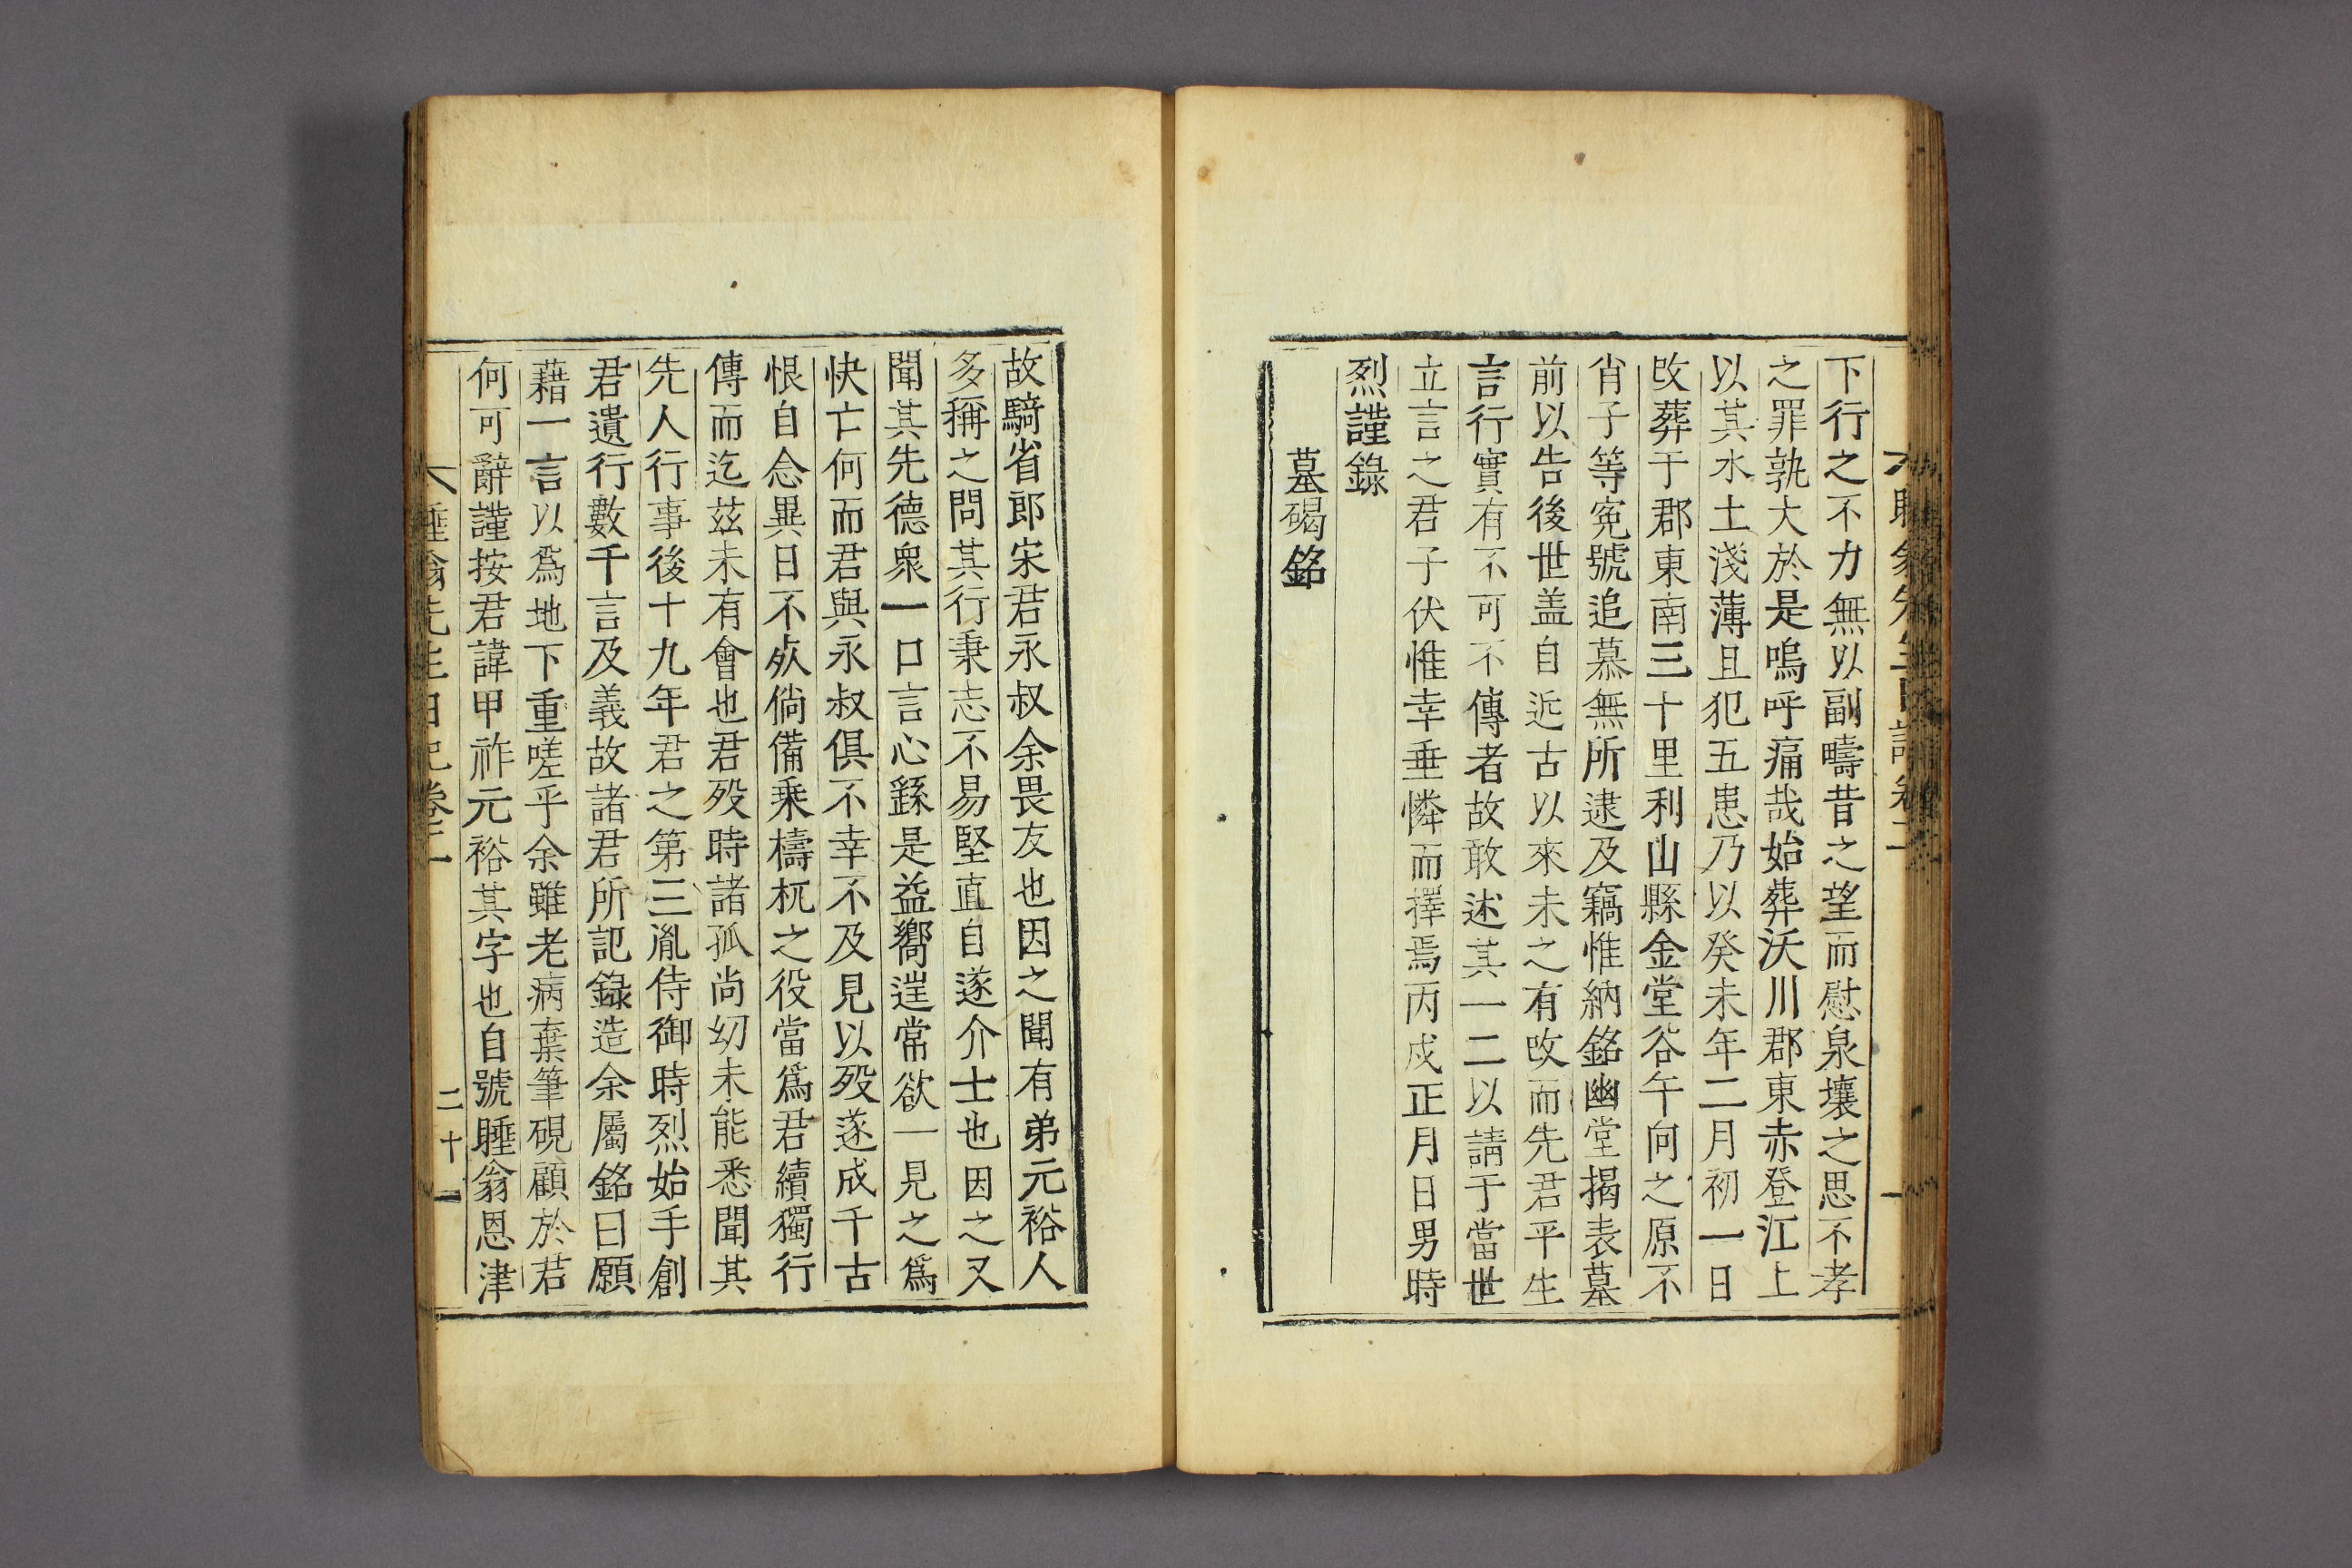 下行之不力無以副疇昔之望而慰泉壤之思不孝
之罪孰大於是嗚呼痛哉始葬沃川郡東赤登江上
以其水土淺薄且犯五患乃以癸未年二月初一日
改葬于郡東南三十里利山縣金堂谷午向之原不
肖子等寃號追慕無所逮及竊惟納銘幽堂揭表墓
前以告後世盖自近古以來未之有改而先君平生
言行實有不可不傳者故敢述其一二以請于當世
立言之君子伏惟幸垂憐而擇焉丙戌正月日男時
烈謹錄
墓碣銘
故騎省郎宋君永叔余畏友也因之聞有弟元裕人
多稱之問其行秉志不易堅直自遂介士也因之又
聞其先德衆一口言心繇是益嚮遑常欲一見之爲
快亡何而君與永叔俱不幸不及見以歿遂成千古
恨自念異日不死倘備乘檮杌之役當爲君續獨行
傳而迄茲未有會也君歿時諸孤尚幼未能悉聞其
先人行事後十九年君之第三胤侍御時烈始手創
君遺行數千言及義故諸君所記錄造余屬銘曰願
藉一言以爲地下重嗟乎余雖老病棄筆硯顧於君
何可辭謹按君諱甲祚元裕其字也自號睡翁恩津
睡翁先生日記卷二
二十一